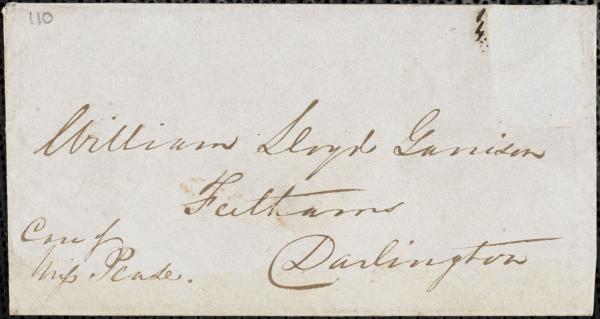 110
William Lloyd Garrison
Feethams
Darlington
Care of
Miss Pease.